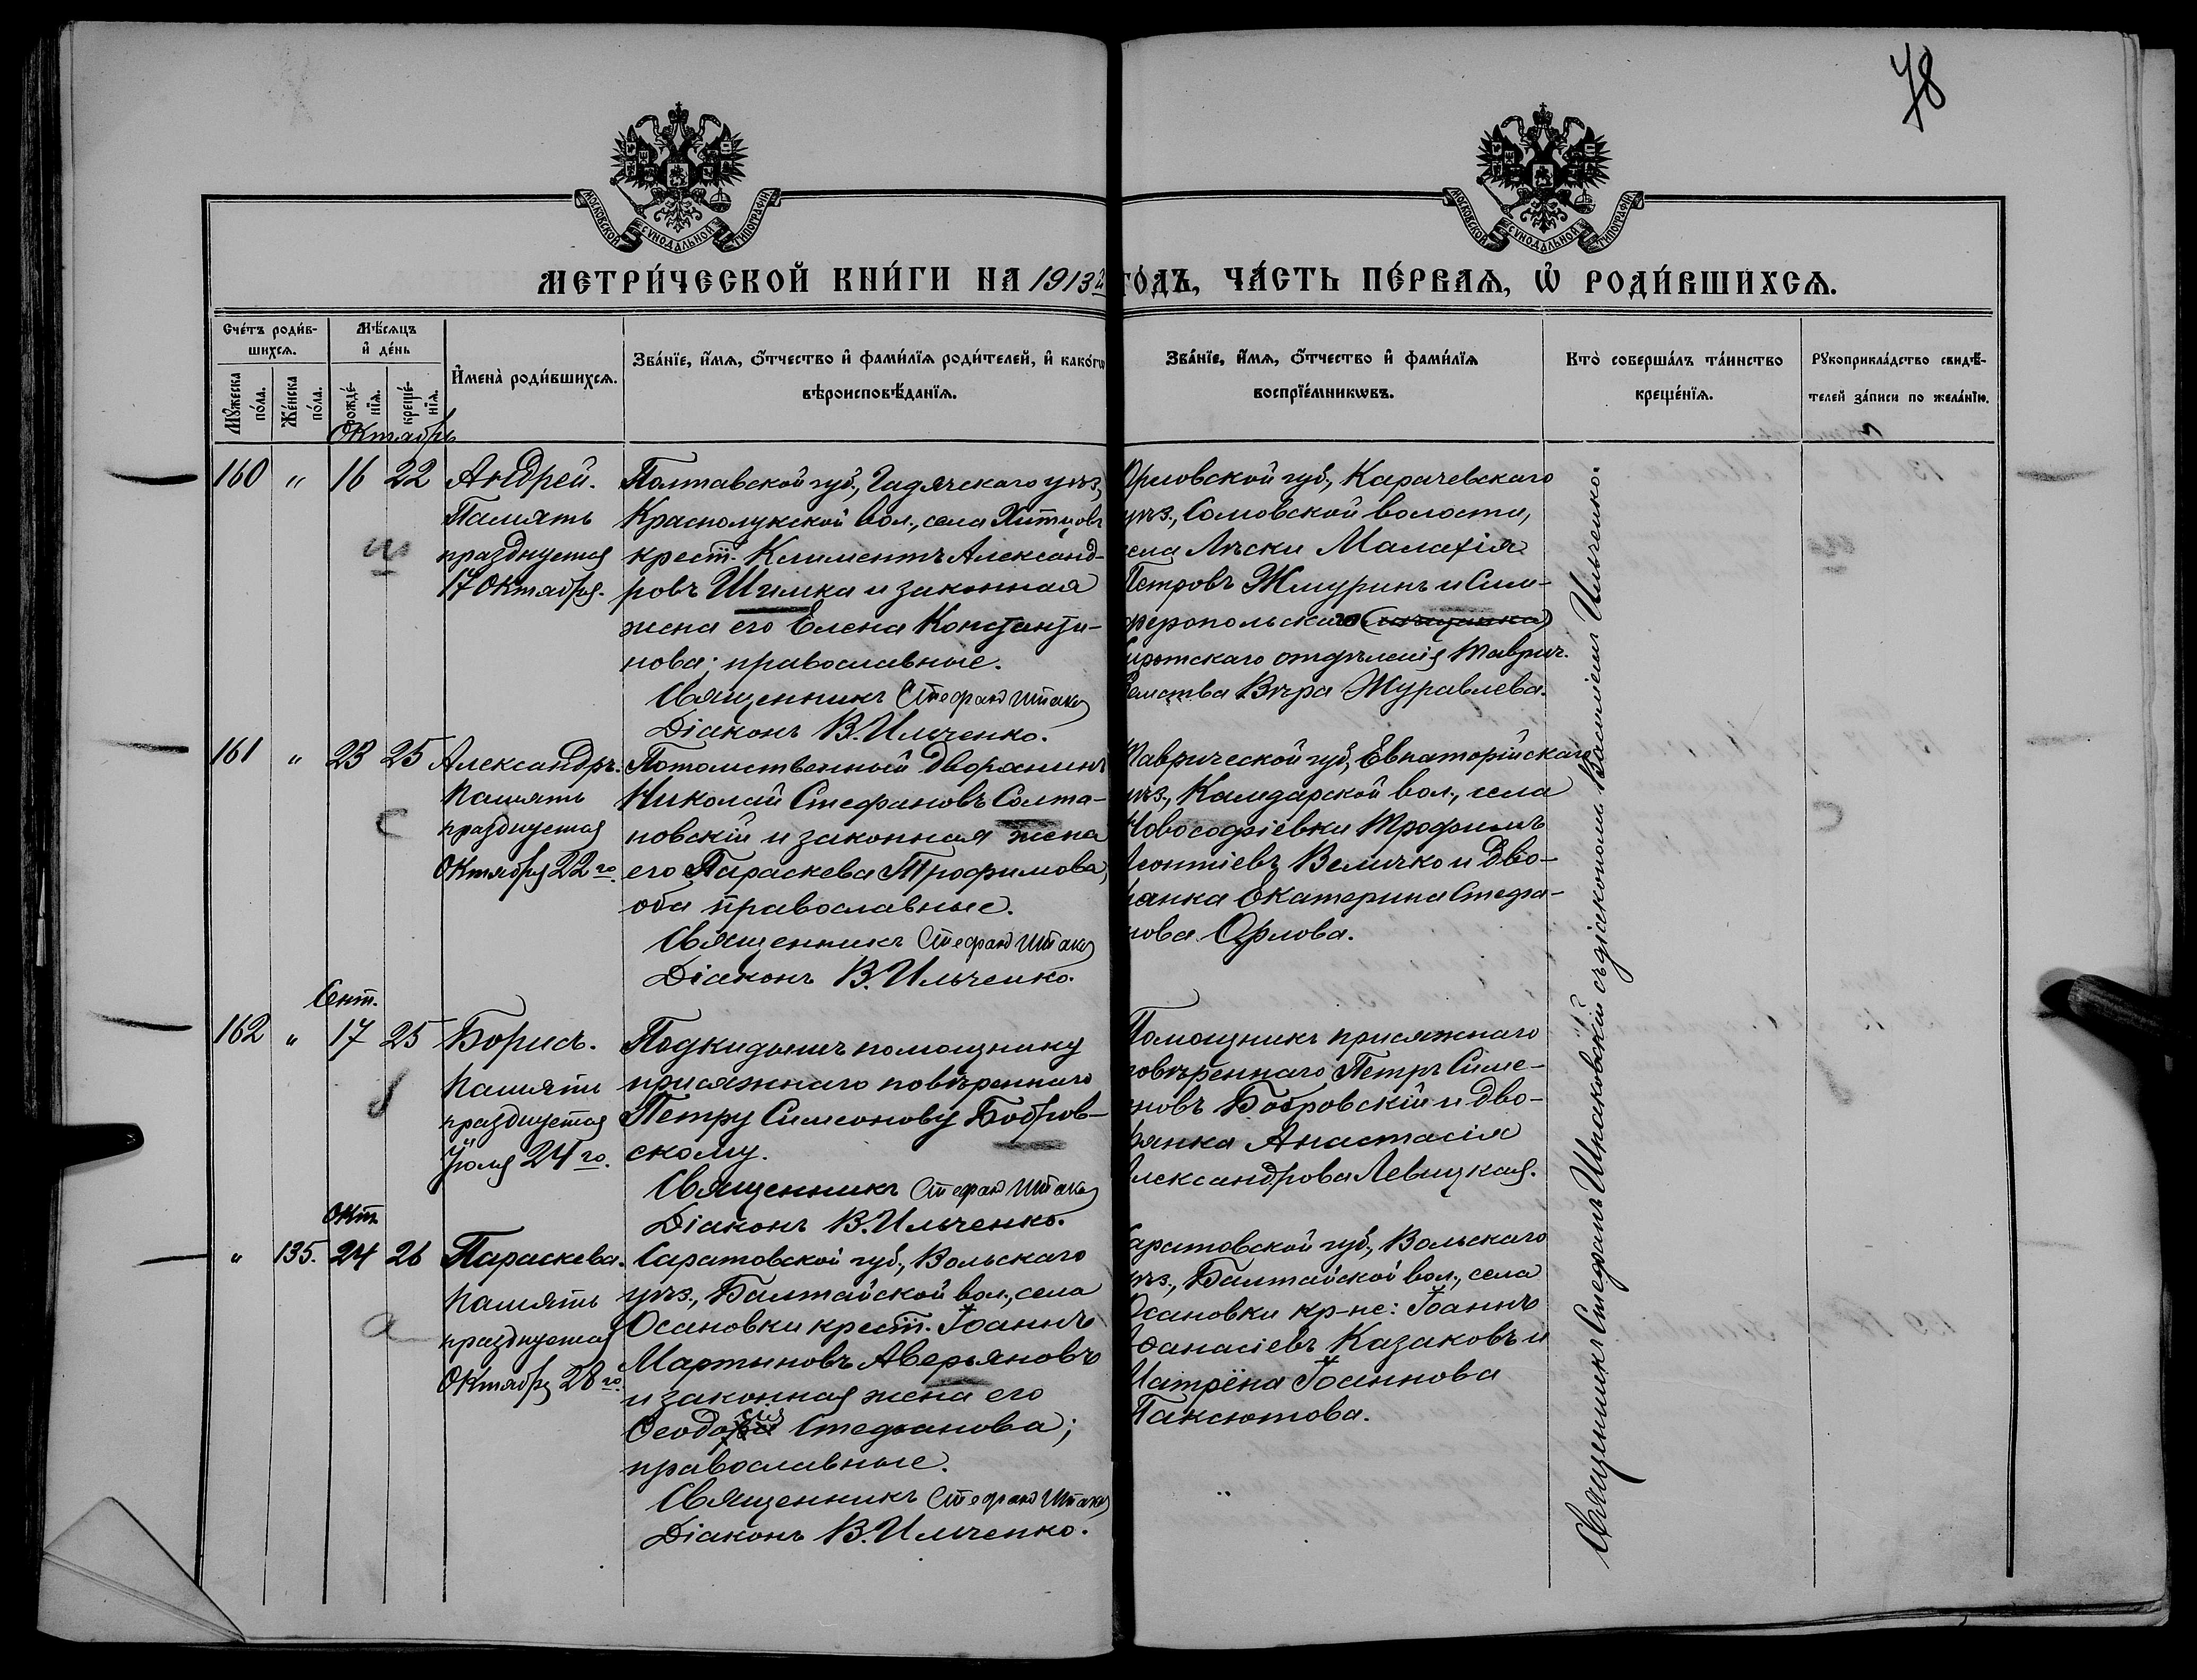 78
МОСКОВСКОЙ СѴНОДАЛЬНОЙ ТИПОГРАФІИ
МОСКОВСКОЙ СѴНОДАЛЬНОЙ ТИПОГРАФІИ
МЕТРИ́ЧЕСКОЙ КНИ́ГИ НА 1913 й ГО́ДЪ, ЧА́СТЬ ПЕ́РВАѦ, Ѡ҆ РОДИ́ВШИХСѦ.
Сче́тъ роди́в-
шихсѧ.
Мꙋ́жеска по́ла.
Же́нска по́ла.
Мѣ́сѧцъ
и҆ де́нь
рожде́-
нїѧ.
креще́-
нїѧ.
И҆мена̀ роди́вшихсѧ.
Зва́нїе, и҆́мѧ, ѻ҆́тчество и҆ фами́лїѧ роди́телей, и҆ како́гѡ
вѣроисповѣ́данїѧ.
Зва́нїе, и҆́мѧ, ѻ҆́тчество и҆ фами́лїѧ
воспрїе́мникѡвъ.
Кто̀ соверша́лъ та́инство
креще́нїѧ.
Рꙋкоприкла́дство свидѣ́-
телей за́писи по жела́нїю.
Октябрь
160 " 16 22 Андрей.
Память
празднуется
17 Октября.
Полтавской губ., Гадячскаго уѣз.,
Краснолукской вол., села Хитцовъ
крест. Климентъ Александ-
ровъ Шимка и законная
жена его Елена Константи-
нова; православные.
Священникъ Стефанъ
Діаконъ В. Ильченко.
Орловской губ., Карачевскаго
уѣз., Сомовской волости,
села Лѣски Малахія
Петровъ Жмуринъ и Сим-
феропольскаго
Сиротскаго отдѣленія Таврич.
Земства Вѣра Журавлева.
161 " 23 25 Александръ.
Память
празднуется
Октября 22го.
Потомственный дворянинъ
Николай Стефановъ Солта-
новскій и законная жена
его Параскева Трофимова,
оба православные.
Священникъ Стефанъ
Діаконъ В. Ильченко.
Таврической губ., Евпаторійскаго
уѣз., Камдарской вол., села
Новософіевки Трофимъ
Леонтіевъ Величко и дво-
рянка Екатерина Стефа-
нова Орлова.
Сент.
162 " 17 25 Борисъ.
Память
празднуется
Іюля 24го.
Подкидышъ помощнику
присяжнаго повѣреннаго
Петру Симеонову Бобров-
скому.
Священникъ Стефанъ
Діаконъ В. Ильченко.
Помощникъ присяжнаго
повѣреннаго Петръ Симе-
оновъ Бобровскій и дво-
рянка Анастасія
Александрова Левицкая.
Окт.
" 135. 24 26 Параскева.
Память
празднуется
Октября 28го.
Саратовской губ., Вольскаго
уѣз., Балтайской вол., села
Осановки крест. Іоаннъ
Мартыновъ Аверьяновъ
и законная жена его
Ѳеодосія Стефанова;
православные.
Священникъ Стефанъ
Діаконъ В. Ильченко.
Саратовской губ., Вольскаго
уѣз., Балтайской вол., села
Осановки кр-не: Іоаннъ
Аѳанасіевъ Казаковъ и
Матрёна Іоаннова
Паксютова.
Священникъ Стефанъ Шпаковскій съ діакономъ Василіемъ Ильченко.